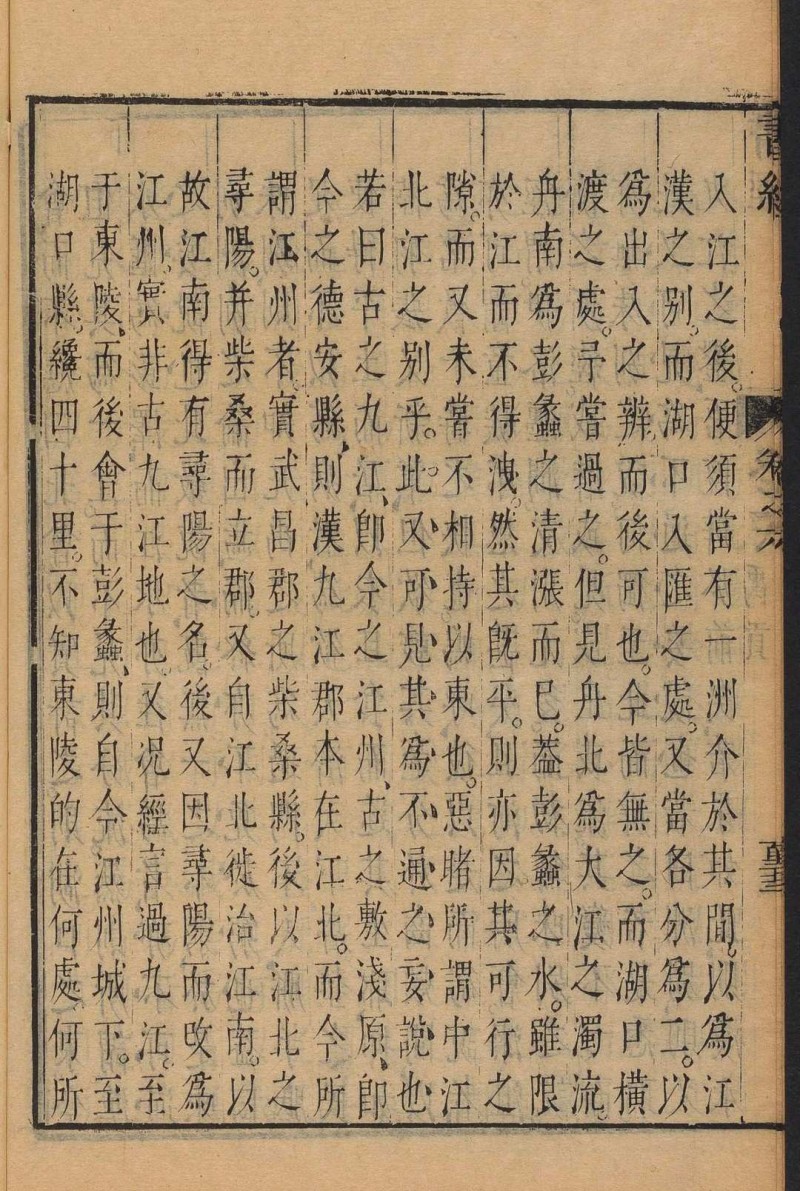 入江之後。便須當有一洲介於其間。以爲江
漢之别。而湖口入匯之處。又當各分爲二。以
爲出入之辨。而後可也。今皆無之。而湖口横
渡之處。予嘗過之。但見舟北爲大江之濁流。
舟南爲彭蠡之清漲而已。葢彭蠡之水。雖限
於江而不得洩。然其旣平。則亦因其可行之
隙。而又未嘗不相持以東也。惡睹所謂中江
北江之别乎。此又可見其爲不通之妄說也
若曰古之九江、卽今之江州、古之敷淺原、卽
今之德安縣、則漢九江郡本在江北。而今所
謂江州者。實武昌郡之柴桑縣。後以江北之
尋陽。并柴桑而立郡。又自江北徙治江南。以
故江南得有尋陽之名。後又因尋陽而改爲
江州。實非古九江地也。又况經言過九江。至
于東陵、而後會于彭蠡、則自今江州城下。至
湖口縣。纔四十里。不知東陵的在何處。何所
書經 卷之六